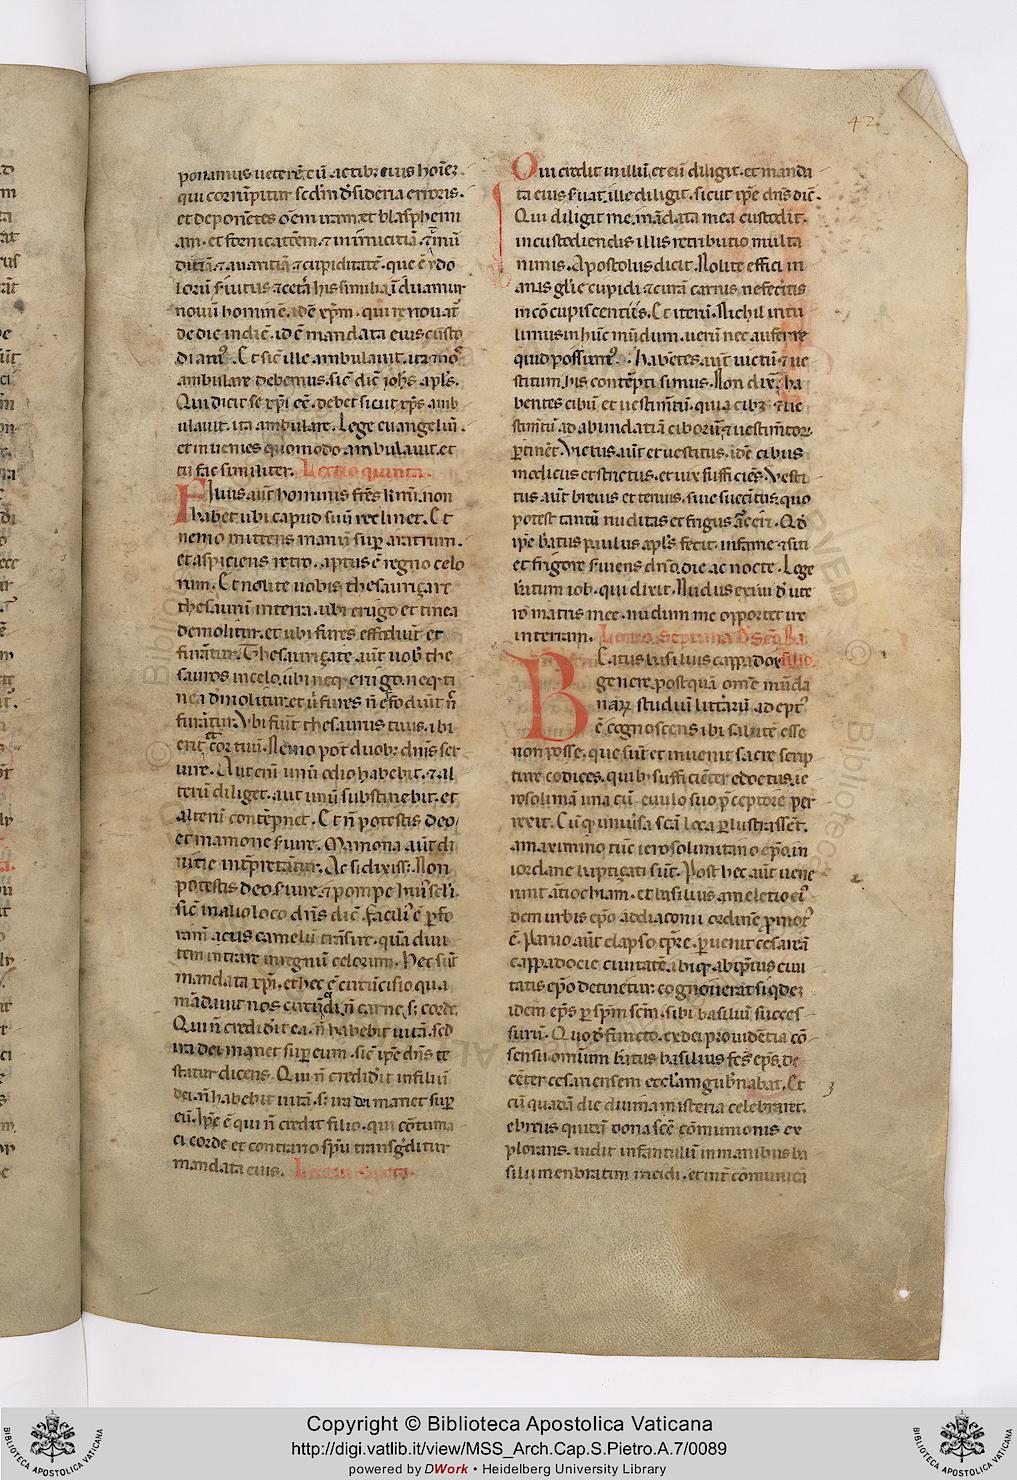 42
ponamus ueterē cū actibꝫ suis hoīeꝫ
qui corrūpitur scđm đsideria erroris.
et deponētes oēm iram. et blasphemi
am. et fornicatōem. ⁊ inimicitiā. ⁊
⁊ auaritiā ⁊ cupiditatē. que ē ydo
lorū ſuitus ⁊ cetā his similia. īduamur
nouū hominē. idē xp̄m. qui renouat᷑
de die in diē. id ē mandata eius custo
diam᷒. Et sic ille ambulauit. ita
ambulare debemus. sic dic̄ ioħs apl̄s.
Qui dicit se xp̄i eē. debet sicut xp̄s amb
ulauit. ita ambulare. Lege euangeliū.
et inuenies quomodo ambulauit. et
tu fac similiter. Lectio quinta.
Filius aūt hominis fr̄es kmī. non
habet ubi capud suū reclinet. Et
nemo mittens manū suꝑ aratrum.
et aspiciens retro. aptus ē regno celo
rum. Et nolite uobis thesauriçare
thesaurū in terra. ubi erugo et tinea
demolitur. et ubi fures effodiūt et
furātur. Thesauriçate aūt uob̄ the
sauros in celo. ubi neq; erugo. neq; ti
nea dmolitur. et ū fures n̄ effodiūt n̄
furātur. Vbi fiūt thesaurus tuus. ibi
erit et cor tuū. Nemo pot̄ duob; dn̄is ser
uire. Aut eni unū odio habebit. ⁊ al
terū diliget. aut unū substinebit. et
alterū contēpnet. Et n̄ potestis deo
et mamone ſuire. Mamona aūt di
uitie int̄pretātur. Ac si dixiss;. Non
potestis deo ſuire. ⁊ pompe hui᷒ scl̄i.
sic in alio loco dn̄s dic̄. facili᷒ ē ꝑ fo
ram̄ acus camelū trāsire. quā diui
tem intrare in regnū celorum. Hec sūt
mandata xp̄i. et hec ē circūcisio qua
mādauit nos circūcidi. n̄ carne. s; corde.
Qui n̄ crediđit ea. n̄ habebit uitā. sed
ira dei manet suꝑ eum. sic ip̄e dn̄s te
statur dicens. Qui n̄ crediđit in filiū
dei. n̄ habebit uitā. s; ira dei manet suꝑ
eū. Ip̄e ē qui n̄ credit filio. qui cōtuma
ci corde et contrario sp̄u transgditur
mandata eius. Lectio sexta.
Qui credit in illū. et eū diligit. et manda
ta eius ſuat. ille diligit. sicut ip̄e dn̄s dic̄.
Qui diligit me. mādata mea custodit.
in custodiendis illis retributio multa
nimis. Apostolus dicit. Nolite effici in
anis gl̄ie cupidi. ⁊ curā carnis ne feceritis
in cōcupiscentiis. Et iterū. Nichil intu
limus in hūc mūdum. uerū nec auferre
quid possum᷒. habētes aūt uictū ⁊ ue
stitum. his contēpti simus. Non dix. ha
bentes cibū et uestim̄tū. quia cib; ⁊ ue
stim̄tū ad abundatiā ciborū ⁊ uestim̄toꝝ
ꝑtinēt. Victus aūt et uestitus. idē cibus
modicus et strictus. et uix sufficiēs. Vesti
tus aūt breuis et tenuis. siue succītus. quo
potest tantū nuditas et frigus Qđ
ip̄e b̄atus paulus apl̄s fecit. in fame ⁊ siti
et frigore ſuiens dn̄o. die ac nocte. Lege
b̄atum iob. qui dixit. Nudus exiui đ ute
ro matris mee. nudum me opportet ire
in terram. Lectio septima Đ Sc̄o Ba
silio.
Beatus basilius cappadox
genere. postquā om̄e mūda
naꝝ studiū litt̄arū adept᷒
ē. cognoscens ibi salutē esse
non posse. que sūt et inuenit sacre scrip
ture codices. quib; sufficiēter edoctus. ie
rosolimā una cū euulo suo ꝑceptore per
rexit. Cūq; uniūsa scā loca ꝑlustrassēt.
a maximino tūc ierosolimitano ep̄o. in
iordane bapticati sūt. Post hec aūt uene
runt ātiochiam. et basilius a meletio ei᷒
dem urbis ep̄o ad diaconii ordinē ꝓmot᷒
ē. Paruo aūt elapso tp̄re. ꝑuenit cesarēā
cappadocie ciuitatē. ibiq; ab ip̄ius ciui
tatis ep̄o detinetur. cognouerat siqđeꝫ
idem ep̄s ꝑ sp̄m scm̄. sibi basiliū succes
surū. Quo dfuncto. ex dei prouidētia cō
sensu omium b̄atus basilius fcs̄ ep̄s. de
cēter cesariensem eccl̄am gub̄nabat. Et
cū quadā die diuina misteria celebraret.
ebreus quidā dona scē cōmunionis ex
plorans. uidit infantulū in manibus ba
silii menbratim incidi. et int̄ cōmunicā
Copyright © Biblioteca Apostolica Vaticana
http://digi.vatlib.it/view/MSS_Arch.Cap.S.Pietro.A.7/0089
powered by DWork • Heidelberg University Library
BIBLIOTECA APOSTOLICA VATICANA
BIBLIOTECA APOSTOLICA VATICANA